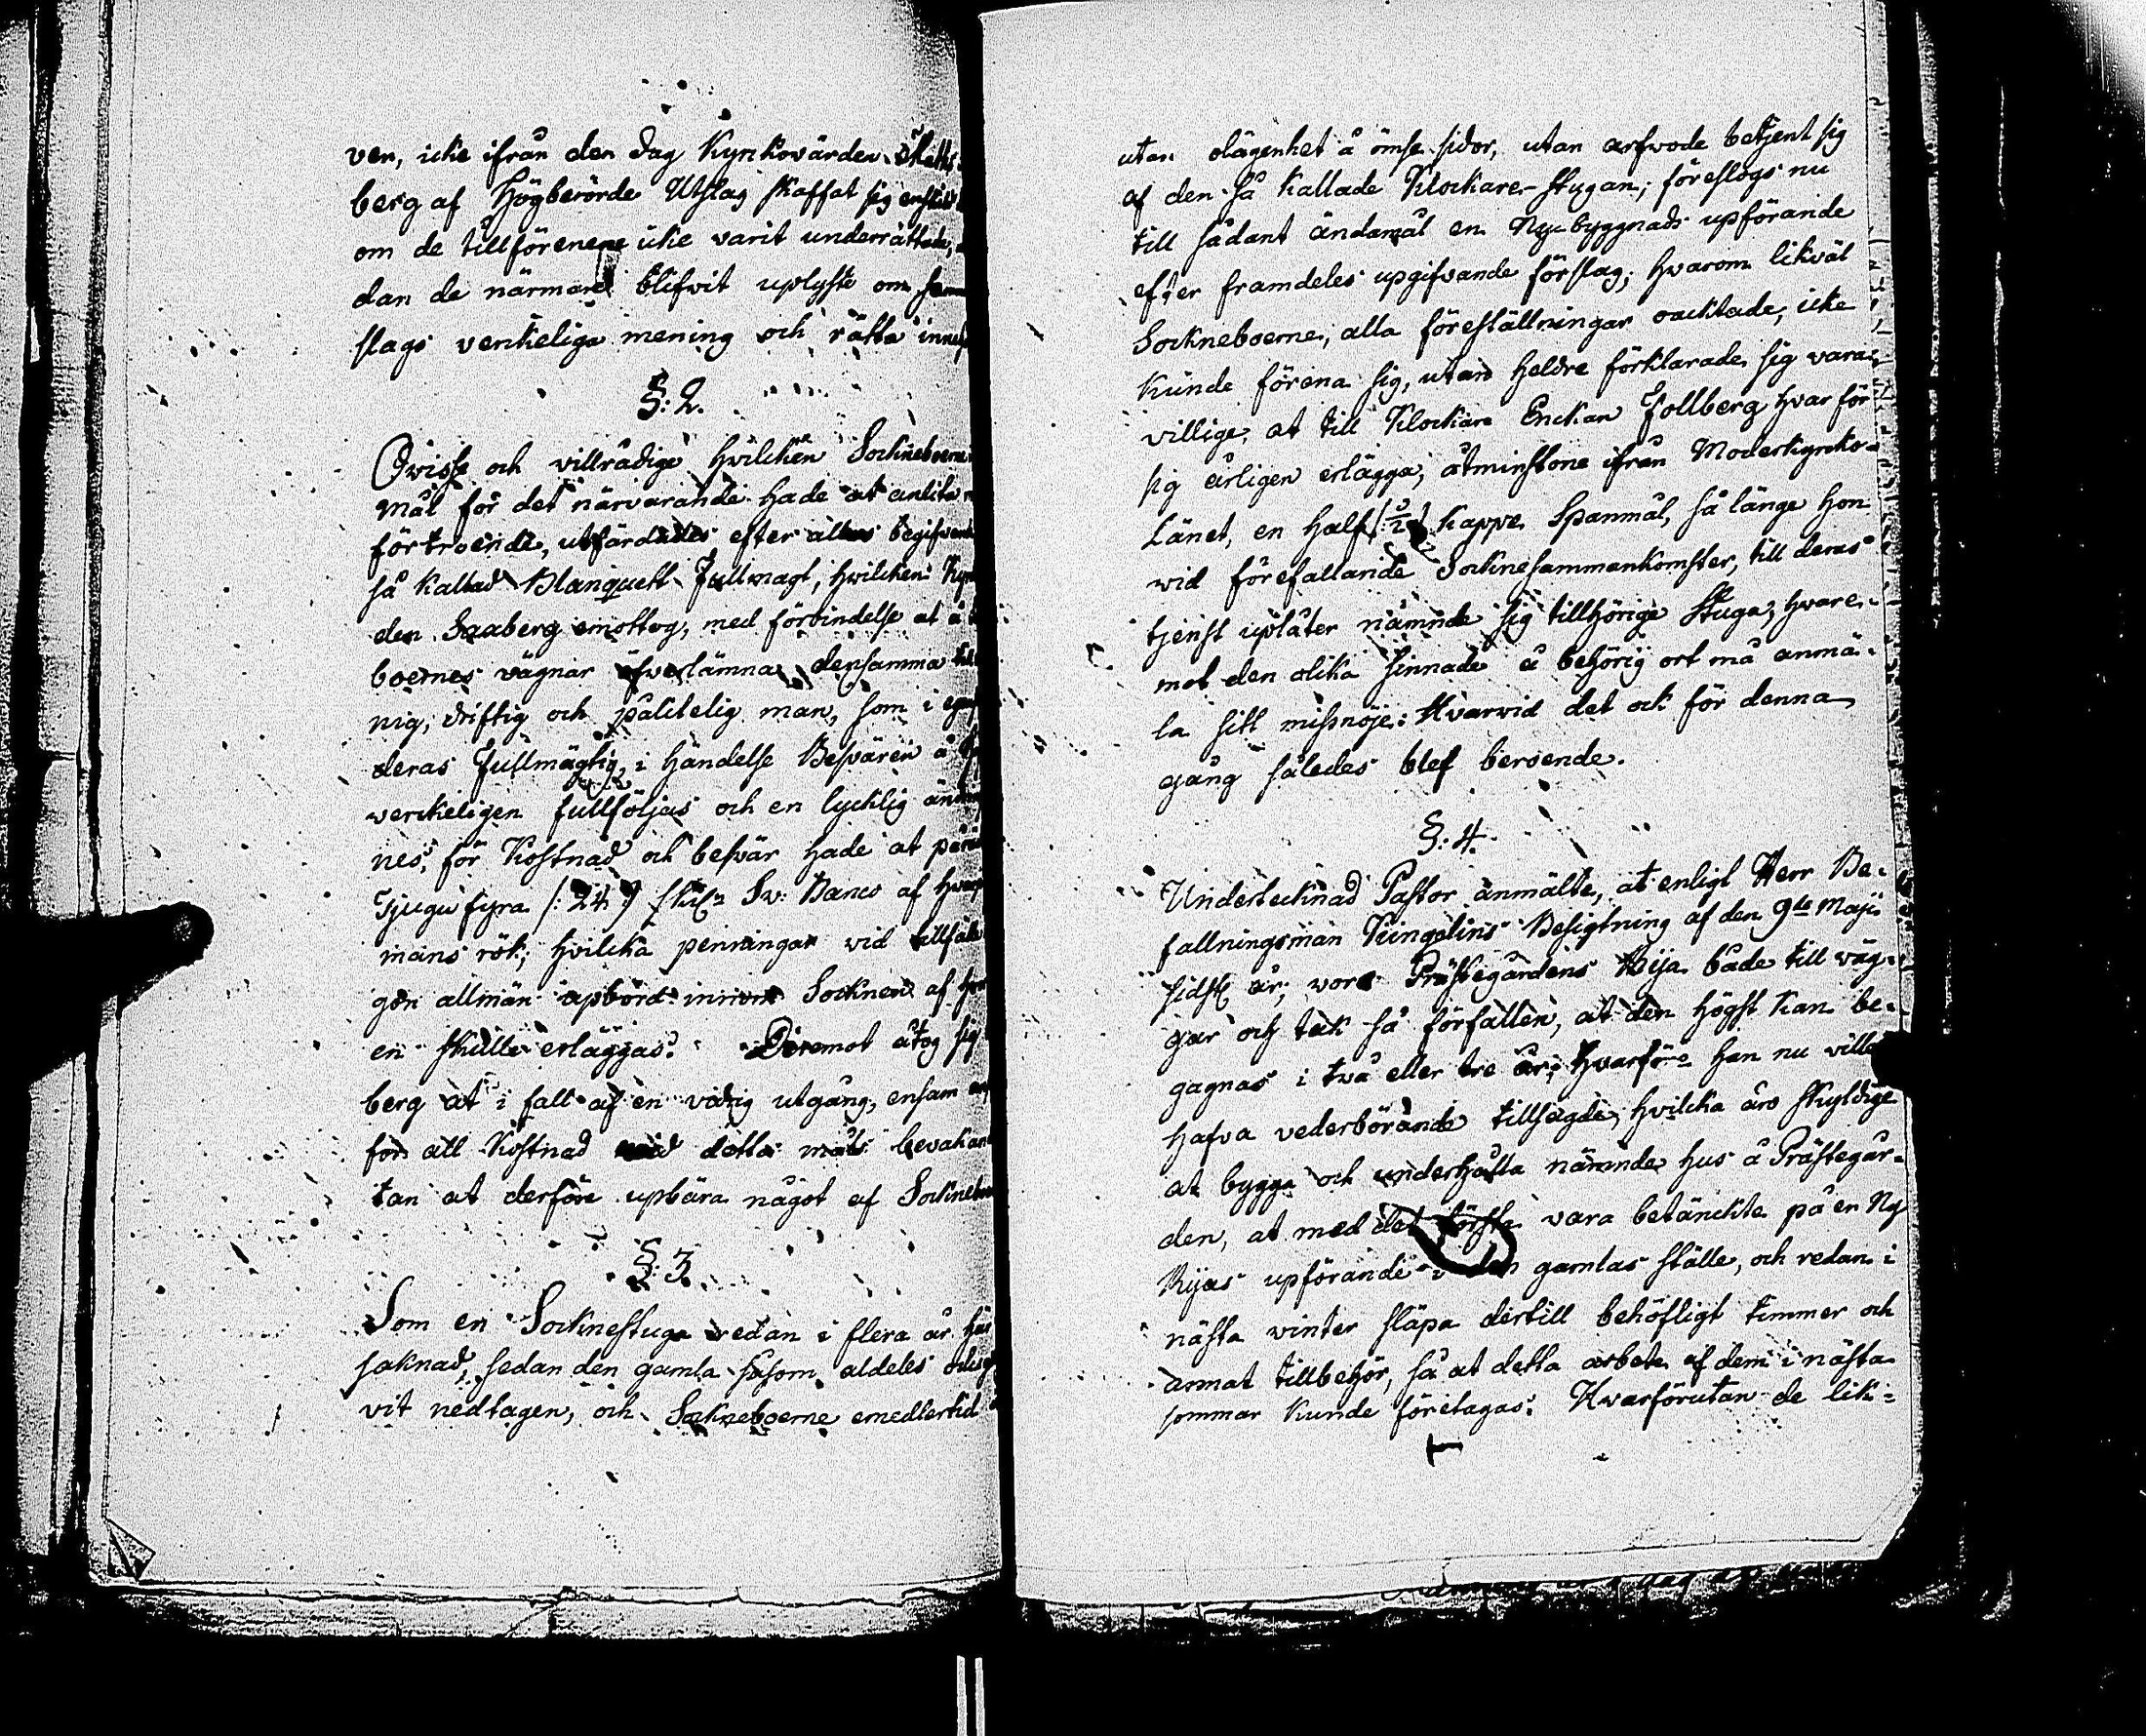 ven, icke ifrån den dag Kyrkovärden
berg af Högberörde Utslag skaffat sig
om de tillförenene icke varit underrättade,
dan de närmare blifwit uplyste om
slags verkeliga mening och rätta
§: 2.
Ovisse och villrådige hvilcken Sockneboerne
mål för det närvarande hade at anlita
förtroende, utfärdades efter allas
så kallad Blanquett Fullmagt, hvilcken
den Saaberg emottog, med förbindelse at å
boernes vägnar öfverlämna densamma
nig, driftig och pålitelig man, som i
deras Fullmägtig, i händelse Besvären å
verckeligen fullföljas och en lycklig
nes, för Kostnad och besvär hade at
Tjugu fyra /: 24 :/ skill. Sv: Banco af
mans rök; hvilcka penningar vid
gon allmän upbörd innom Socknen af
en skulle erläggas. Deremot åtog sig
berg at i fall af en vidrig utgång, ensam
för all Kostnad vid detta måls
tan at derföre upbära något af
§: 3.
Som en Socknestuga redan i flera år
saknad, sedan den gamla såsom aldeles
vit nedtagen, och Sockneboerne emedlertid
utan olägenhet å ömse sidor, utan arfwode betjent sig
af den så kallade Klockare-stugan; föreslogs nu
till sådant ändamål en Nybyggnads upförande
efter framdeles upgifvande förslag; hvarom likväl
Sockneboerne, alla föreställningar oacktade, icke
kunde förena sig, utan heldre förklarade sig vara
villige, at till Klockare Enckan Follberg hvar för
sig årligen erlägga, åtminstone ifrån Moderkyrko-
Länet, en half /: 1/2 :/ Kappe Spanmål, så länge hon
wid förefallande Socknesammankomster, till deras
tjenst uplåter nämnde sig tillhörige Stuga; hvare-
mot den olika sinnade å behörig ort må anmä-
la sitt missnöje: Hvarvid det ock för denna
gång således blef beroende.
§. 4.
Undertecknad Pastor anmälte, at enligt Herr Be-
fallningsman Kungelins Besigtning af den 9de Maji
sidstl. år, vore Prästegårdens Rija både till väg-
gar och tak så förfallen, at den högst kan be-
gagnas i två eller tre år; hvarföre han nu ville
hafva vederbörande tillsagde, hvilcka äro skyldige
at bygga och underhålla nämnde hus å Prästegår-
den, at med det första vara betänckte på en Ny
Rijas upförande i den gamlas ställe, och redan i
nästa winter släpa dertill behöfligt timmer och
annat tillbehör, så at detta arbete af dem i nästa
sommar kunde företagas. Hvarförutan de lik-